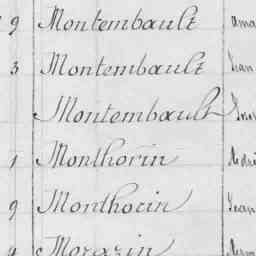 9 Montembault ama
3 Montembault Jean
Montembault
1 Monthorin
9 Monthorin Jean
9 Morazin